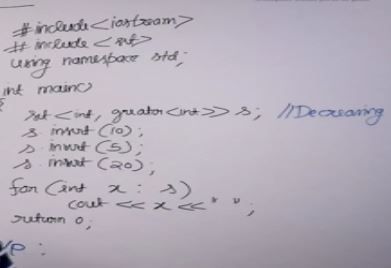 #include<iostream>
#include <set>
using namespace std;
int main()
{
set <int, greater<int>> s; //Decreasing
s. insert (10);
s. insert (5);
s. insert (20);
for (int x : s)
cout << x <<" ";
return 0;